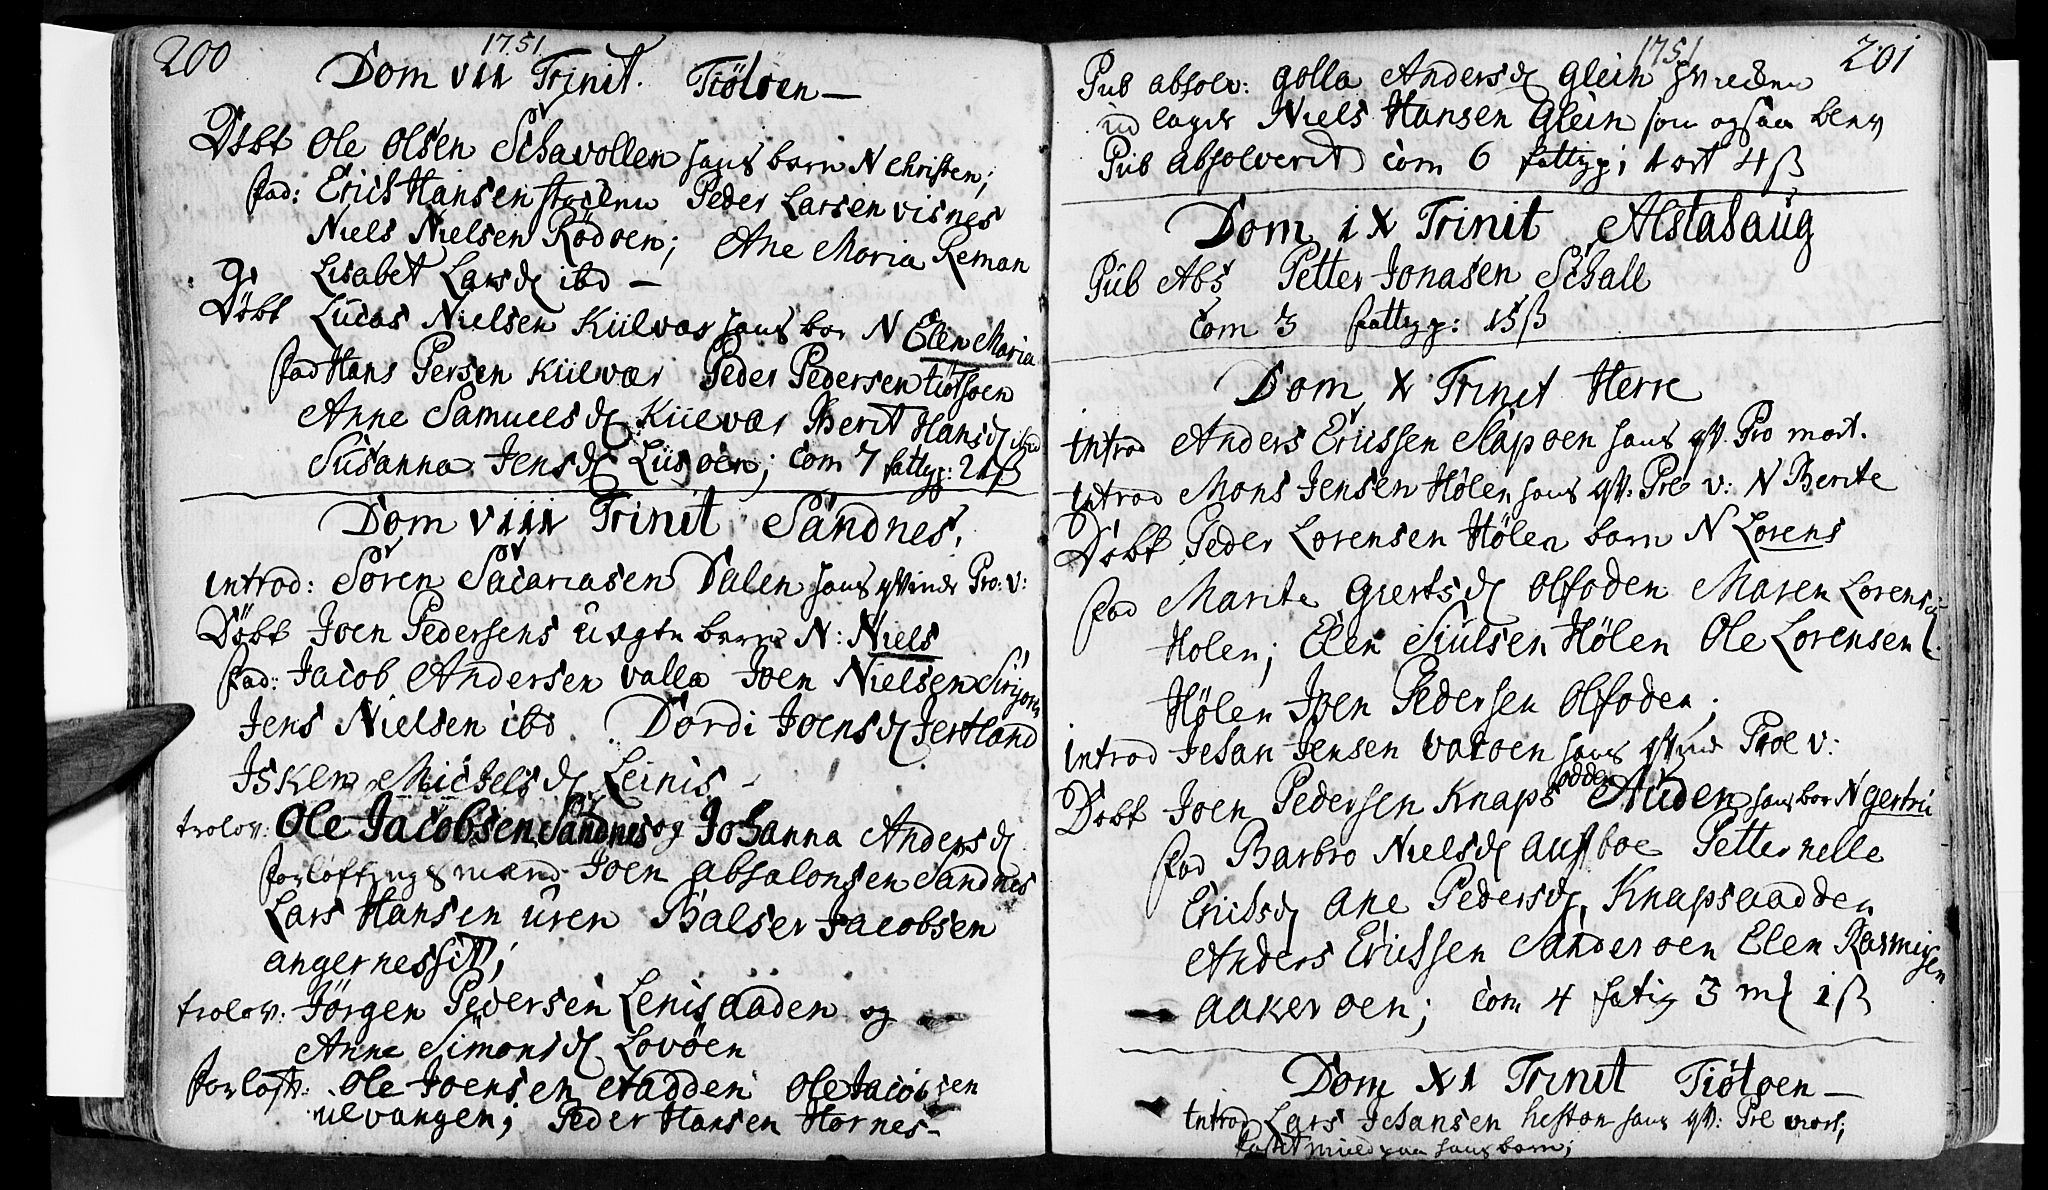 200
1751
Dom VII Trinit. Tiötöen —
Döbt Ole Olsen Schavollen hans barn N Christen;
fad: Erich Hansen Peder Larsen Visnes
Niels Nielsen Rödöen; Ane Maria Reman
Lisabet Larsd ibd —
Döbt Lucas Nielsen Kiilvær hans bar N Elen Maria
fad Hans Persen Kiilvær Peder Pedersen tiötöen
Anne Samuelsd Kiilvær Berit Hansd ibid
Susanna Jensd Lüsöen; Com 7 fattig: 21 ß
Dom VIII Trinit Sandnes.
introd: Sören Sacariasen Dalen hans qvinde Pro: v:
Döbt Joen Pedersens uægte barn N: Niels
fad: Jacob Andersen Valla Joen Nielsen
Jens Nielsen ibd Dordi Joensd Jertland
Michelsd Leinis —
trolov: Ole Jacobsen Sandnes og Johanna Andersd
forlöftningsmænd Joen Absalonsen Sandnes
Lars Hansen Uren Balser Jacobsen
angernessit;
trolov: Jörgen Pedersen Lenisaaden og
Anne Simonsd Lovöen
forlöft: Ole Joensen Aadden Ole Jacobsen
ulvangen; Peder Hansen Hornes —
1751
201
Pub absolv: Golla Andersd Glein
lager Niels Hansen Glein som ogsaa blev
Pub absolverit com 6 fattigp: 1 ort 4 ß
Dom IX Trinit Alstahaug
Pub Abs Petter Jonasen Schall
Com 3 fattigp: 15 ß
Dom X Trinit Herre
introd Anders Erichsen Slapöen hans qv: Pro mort.
introd Mons Jensen Hölen hans qv: Pro v: N Berite
Döbt Peder Lorensen Hölen barn N Lorens
fad Marite Giertsd Olfoden Maren Lorensd
Holen; Elen Siulsen Hölen Ole Lorensen
Hölen Joen Pedersen Olfoden;
introd Johan Jensen Varöen hans qvind Prol v:
Döbt Joen Pedersen Knaps odden Auden hans bar N Gertru
fad Barbro Nielsd Austboe Petternelle
Erichsd Ane Pedersd Knapsaadden
Anders Erichsen Sanderöen Elen Rasmusen
aakeröen; Com 4 fatig 3 m 1 ß
Dom XI Trinit Tiötöen —
Introd Lars Johansen heston hans qv: Pro mort;
Kastet muld paa hans barn;